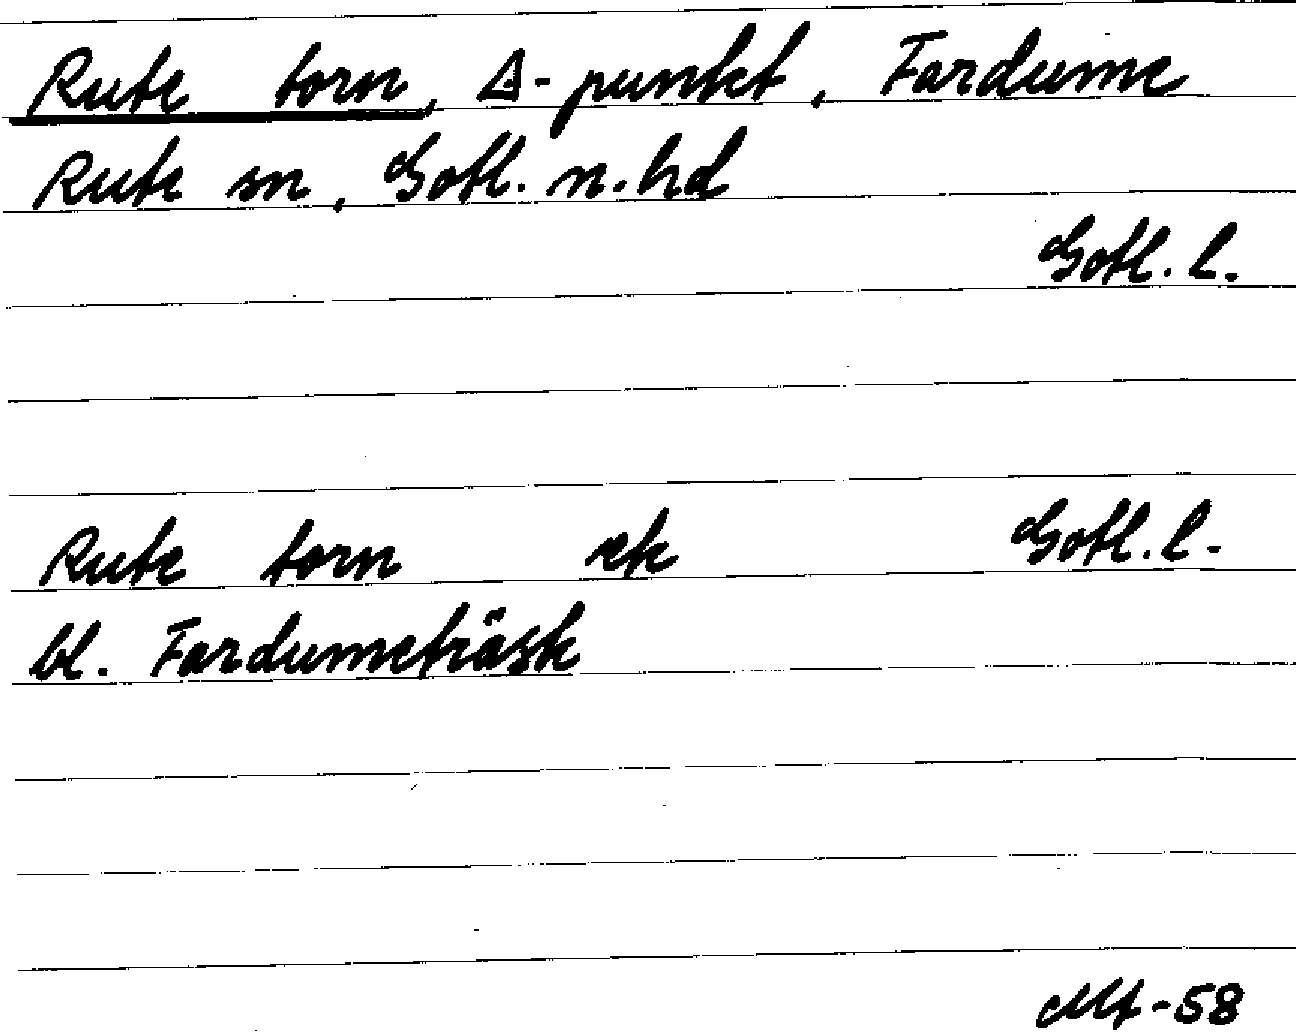 Rute torn, Δ-punkt, Fardume
Rute sn, Gotl. n. hd
Gotl. l.
Rute torn ek Gotl. l.
bl. Fardumeträsk
-58